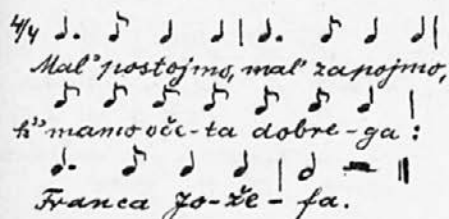 4/4
Mal' postojmo, mal' zapojmo,
k' mamo oče-ta dobre-ga:
Franca Jo-že-fa.